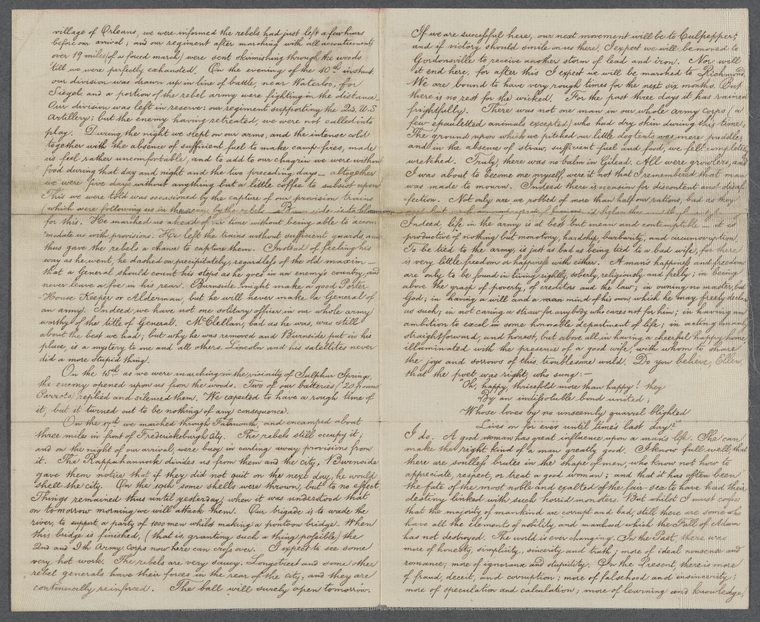 village of Orleans, we were informed the rebels had just left a few hours
before our arrival; and our regiment after marching with all accoutrements
over 19 miles (of a forced march) were sent skirmishing through the woods
till we were perfectly exhausted. On the evening of the 10th instant
our division was drawn up in line of battle, near Waterloo, for
Siegel and a portion of the rebel army were fighting in the distance.
Our division was left in reserve; our regiment supporting the 2nd U.S.
Artillery; but the enemy having retreated, we were not called into
play. During the night we slept on our arms, and the intense cold
together with the absence of sufficient fuel to make camp-fires, made
us feel rather uncomfortable, and to add to our chagrin we were without
food during that day and night and the two preceding days – altogether
we were five days without anything but a little coffee to subsist upon.
This we were told was occasioned by the capture of our provision trains
(which were following us in the rear) by the rebels. Burnside is to blame
for this. He marched ahead of us without being able to accom
modate us with provisions. He left the trains without sufficient guards, and
thus gave the rebels a chance to capture them. Instead of feeling his
way as he went, he dashed on precipitately, regardless of the old maxim –
that a General should count his steps as he goes in an enemy's country, and
never leave a foe in his rear. Burnside might make a good Porter-
House Keeper or Alderman, but he will never make a General of
an army. Indeed we have not one solitary officer in our whole army
worthy of the title of General. McClellan, bad as he was, was still
about the best we had; but why he was removed and Burnside put in his
place, is a mystery to me and all others. Lincoln and his satellites never
did a more stupid thing.
On the 15th as we were marching in the vicinity of Sulphur Springs,
the enemy opened upon us from the woods. Two of our batteries (20 pound
Parrots) replied and silenced them. We expected to have a rough time of
it, but it turned out to be nothing of any consequence.
On the 17th we marched through Falmouth, and encamped about
three miles in front of Fredericksburgh City. The rebels still occupy it,
and on the night of our arrival, were busy in carting away provisions from
it. The Rappahannock divides us from them and the city. Burnside
gave them notice that if they did not quit on the next day, he would
shell the city. On the 19th some shells were thrown, but to no effect.
Things remained thus until yesterday, when it was understood that
on tomorrow morning we will attack them. Our brigade is to wade the
river, to support a party of 1000 men whilst making a pontoon bridge. When
this bridge is finished, (that is granting such a thing possible) the
2nd and 9th Army Corps now here can cross over. I expect to see some
very hot work. The rebels are very saucy. Longstreet and some other
rebel generals have their forces in the rear of the city, and they are
continually reinforced. The ball will surely open tomorrow.
If we are successful here, our next movement will be to Culpepper;
and if victory should smile on us there, I expect we will be moved to
Gordonsville to receive another storm of lead and iron. Nor will
it end here, for after this I expect we will be marched to Richmond.
We are bound to have very rough times for the next six months. But
there is no rest for the wicked. For the past three days it has rained
frightfully. There was not one man in our whole army corps (a
few epauletted animals excepted) who had dry skin during this time.
The ground upon which we pitched our little dog tents was mere puddles,
and in the absence of straw, sufficient fuel and food, we felt completely
wretched. Truly, there was no balm in Gilead. All were growlers, and
I was about to become one myself, were it not that I remembered that man
was made to mourn. Indeed there is occasion for discontent and disaf
fection. Not only are we robbed of more than half our rations, bad as they
Indeed, life in the army is at best but mean and contemptible – it is
productive of nothing but monotony, hardship, barbarity, and circumvention.
To be tied to the army is just as bad as being tied to a bad wife, for there
is very little freedom or happiness with either. A man's happiness and freedom
are only to be found in living rightly, soberly, religiously and freely; in being
above the grasp of poverty, of creditors and the law; in owning no master, but
God; in having a will and a mind of his own which he may freely
as such; in not caring a straw for anybody who cares not for him; in having an
ambition to excel in some honorable department of life; in acting honorably,
straightforward, and honest, but above all in having a cheerful happy home,
illuminated with the presence of a good wife, with whom to share
the joys and sorrows of this troublesome world. Do you believe, Ellen,
that the poet was right, who sung –
"Oh, happy, thricefold more than happy! they
By an indissoluble bond united;
Whose loves by no unseemly quarrel blighted
Lives on for ever until times last day?"
I do. A good woman has great influence upon a man's life. She can
make the right kind of a man greatly good. I know full well, that
there are soulless brutes in the shape of men, who know not how to
appreciate, respect, or treat a good woman; and that it has often been
the fate of the most noble and exalted of the fair sex to have had their
destiny linked with such horrid monsters. But whilst I must confess
that the majority of mankind are corrupt and bad, still there are some who
have all the elements of nobility and manhood which the Fall of Adam
has not destroyed. The world is ever changing. In the Past there was
more of honesty, simplicity, sincerity and truth; more of ideal nonsense and
romance; more of ignorance and stupidity. In the Present there is more
of fraud, deceit, and corruption; more of falsehood and insincerity;
more of speculation and calculation; more of learning and knowledge,